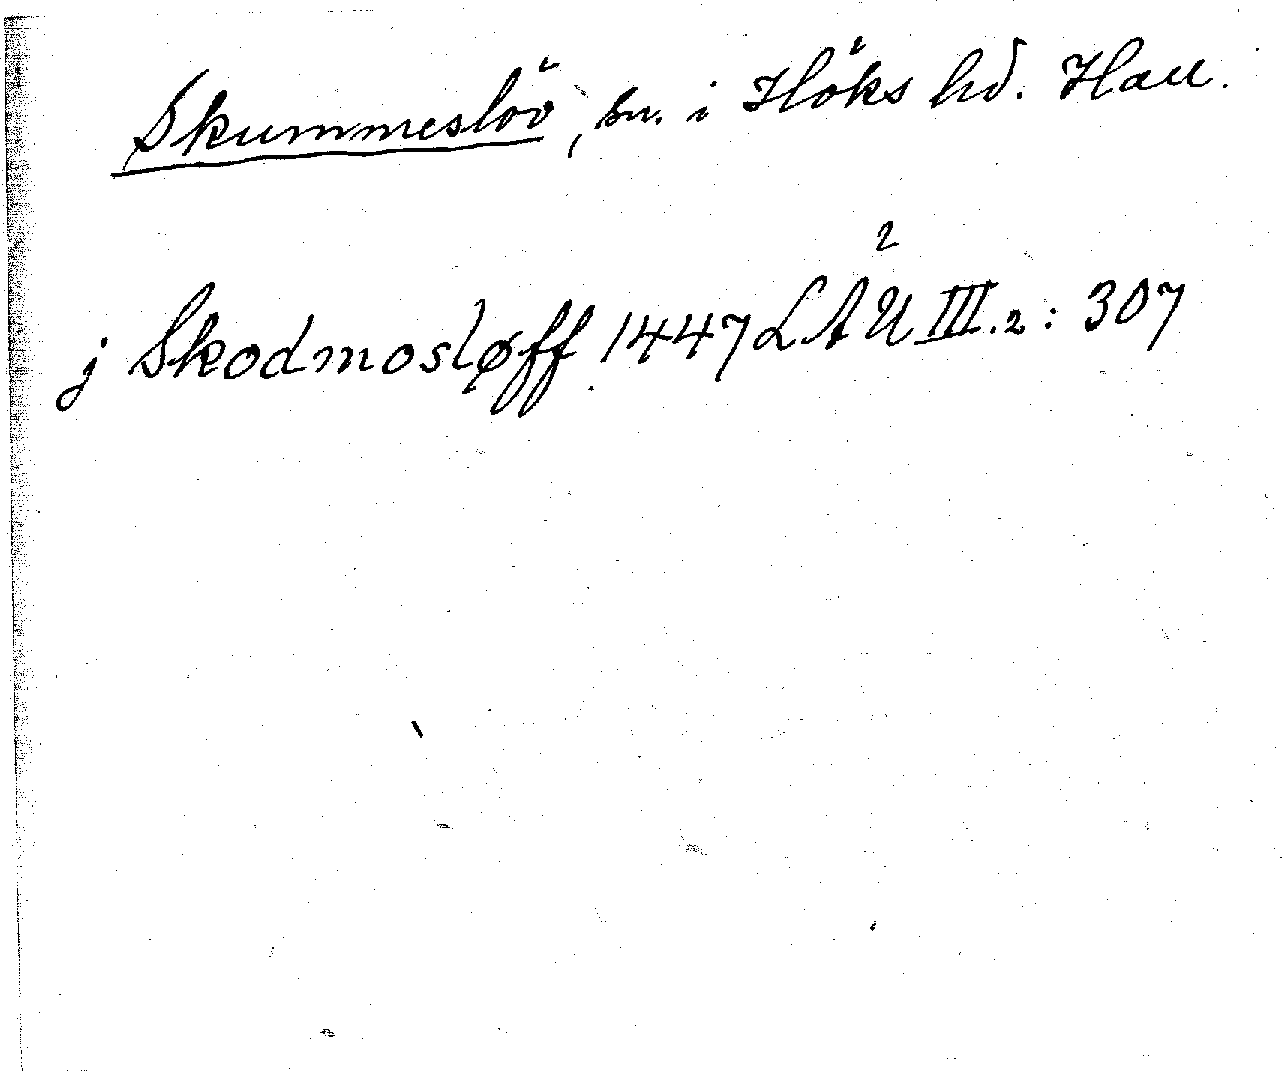 Skummeslöv, sn. i Höks hd. Hall.
2
j Skodmosløff 1447 LÄU III.2: 307